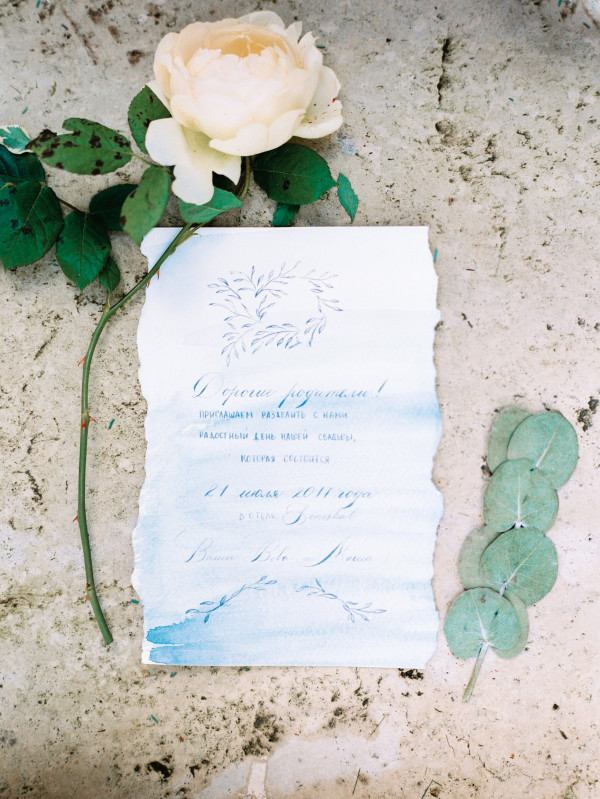 Дорогие родители!
ПРИГЛАШАЕМ РАЗДЕЛИТЬ С НАМИ
РАДОСТНЫЙ ДЕНЬ НАШЕЙ СВАДЬБЫ,
КОТОРАЯ СОСТОИТСЯ
21 июля 2017 года
В ОТЕЛЕ
Ваши